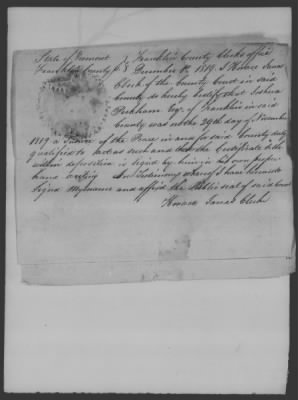 State of Vermont } Franklin County Clerks office
Franklin County ss } December 1st 1819 I Horace Janes
Clerk of the County Court in said
County do hereby certify that Joshua
Peckham Esqr. of Franklin in said
County was on the 29th day of November
1819 a Justice of the Peace in and for said County duly
qualified to act as such and that the Certificate to the
within deposition is signd by him in his own proper
hand writing In Testimony whereof I have hereunto
Signd my name and affixd the seal of said Court
Horace Janes Clerk